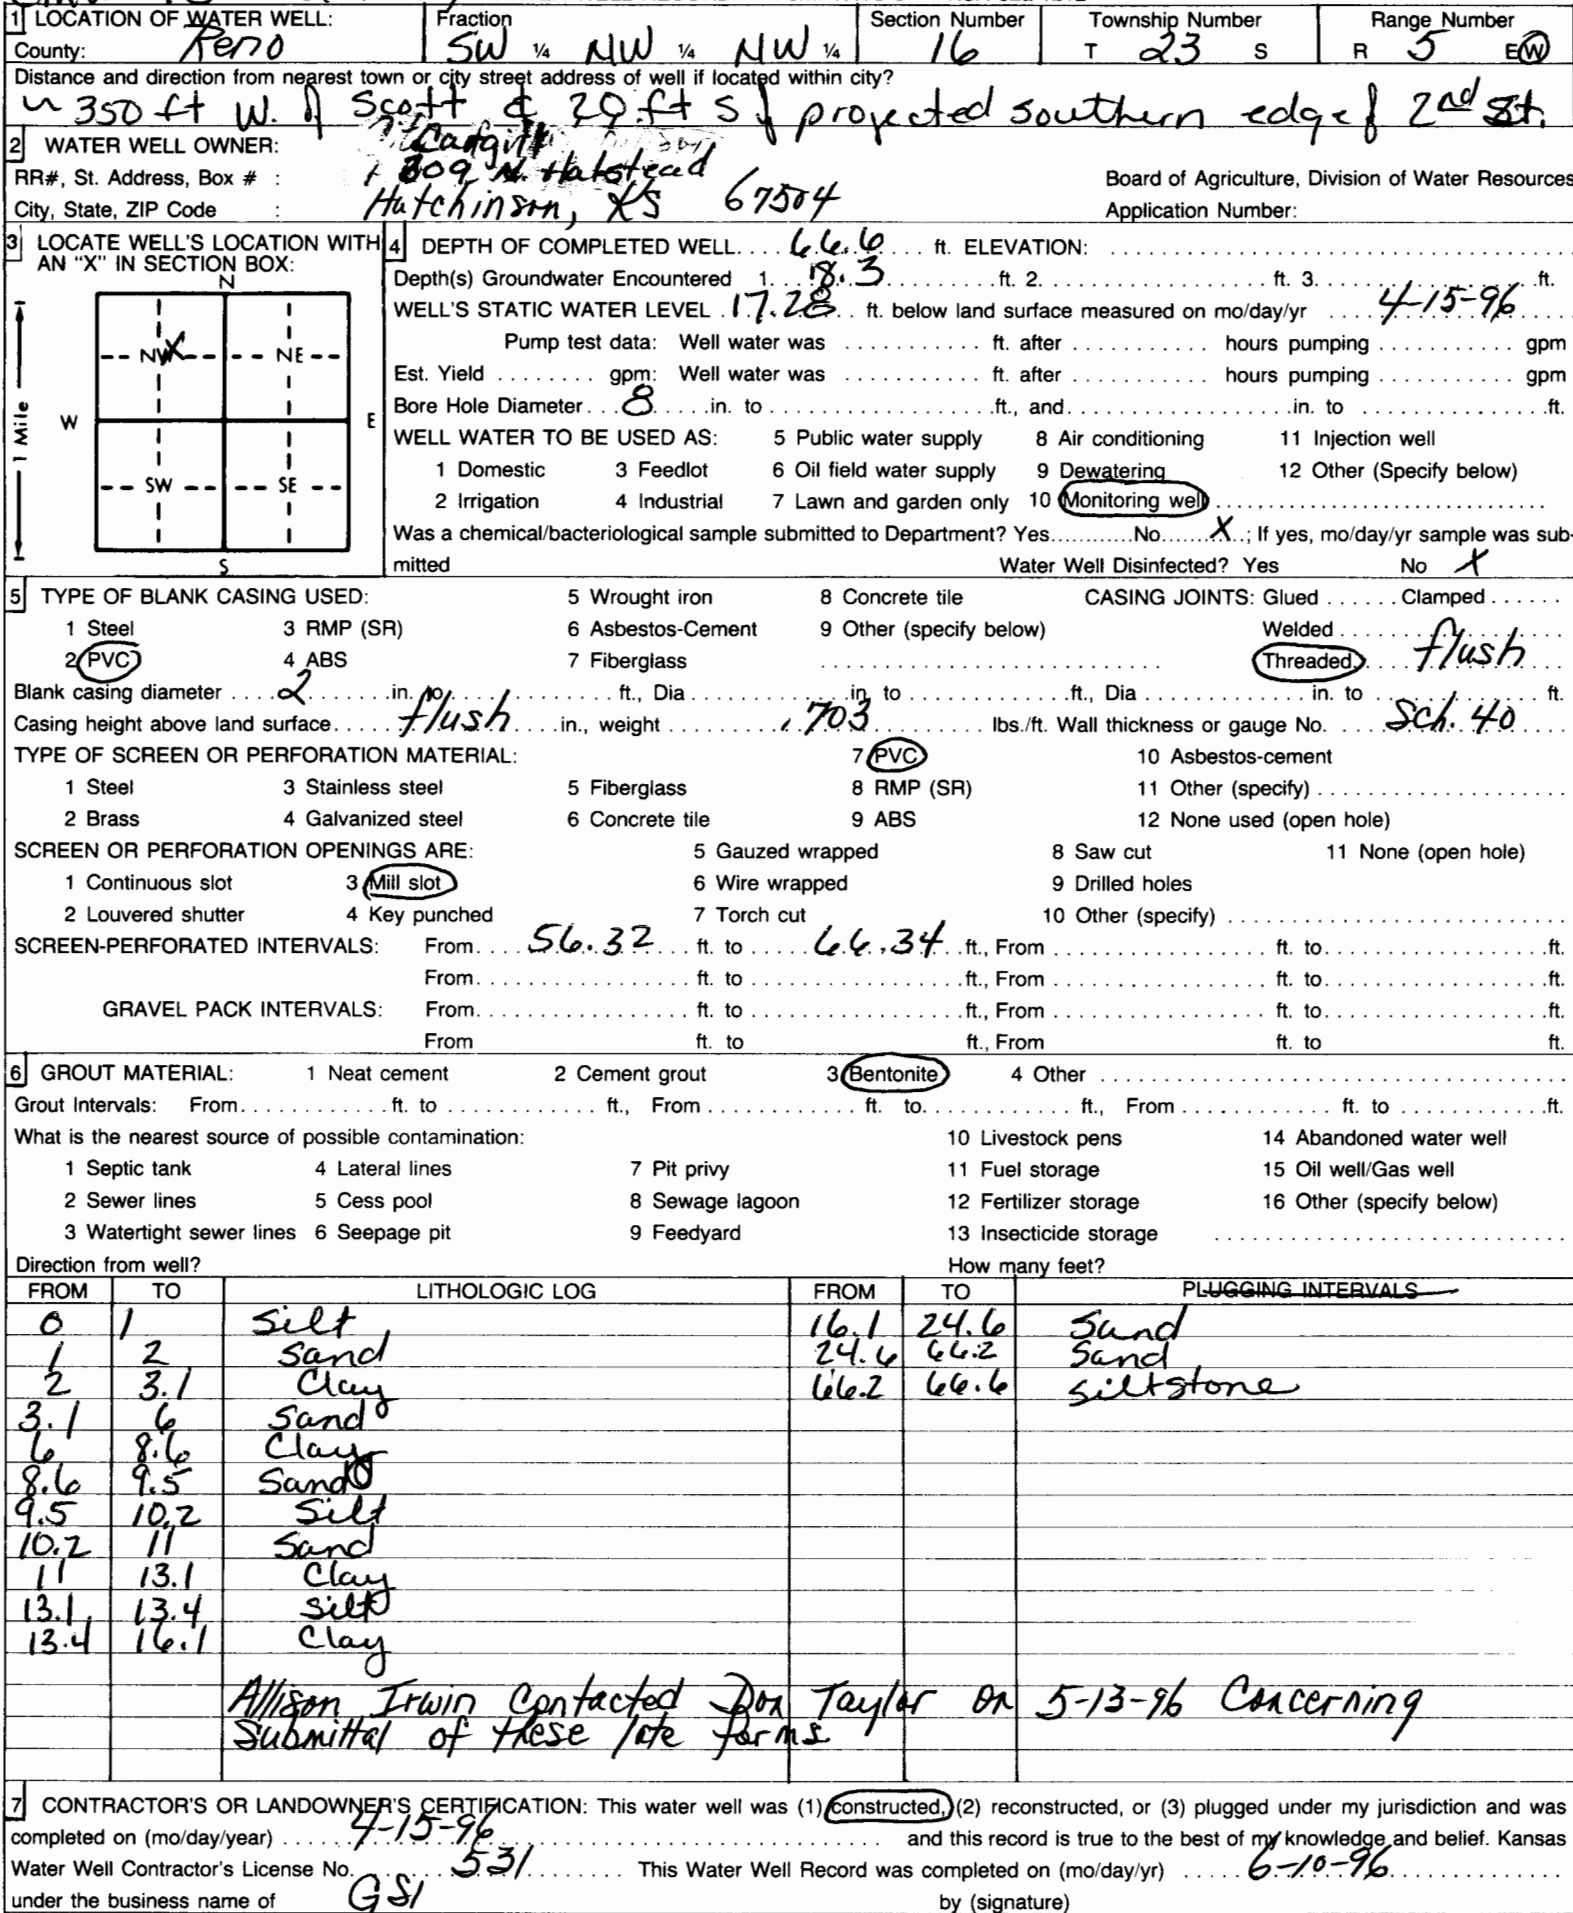 1 LOCATION OF WATER WELL: Fraction Section Number Township Number Range Number
County: Reno SW ¼ NW ¼ NW ¼ 16 T 23 S R 5 E(W)
Distance and direction from nearest town or city street address of well if located within city?
~ 350 ft W. of Scott & 20 ft S of projected southern edge of 2nd St.
2 WATER WELL OWNER: Cargill
RR#, St. Address, Box # : 309 N. Halstead Board of Agriculture, Division of Water Resources
City, State, ZIP Code : Hutchinson, KS 67504 Application Number:
3 LOCATE WELL'S LOCATION WITH AN "X" IN SECTION BOX:
N
NW X NE
W E
1 Mile
SW SE
S
4 DEPTH OF COMPLETED WELL.... 66.6 ft. ELEVATION:
Depth(s) Groundwater Encountered 1. 18.3 ft. 2. ft. 3. ft.
WELL'S STATIC WATER LEVEL 17.28 ft. below land surface measured on mo/day/yr 4-15-96
Pump test data: Well water was ft. after hours pumping gpm
Est. Yield gpm: Well water was ft. after hours pumping gpm
Bore Hole Diameter 8 in. to ft., and in. to ft.
WELL WATER TO BE USED AS: 5 Public water supply 8 Air conditioning 11 Injection well
1 Domestic 3 Feedlot 6 Oil field water supply 9 Dewatering 12 Other (Specify below)
2 Irrigation 4 Industrial 7 Lawn and garden only 10 Monitoring well
Was a chemical/bacteriological sample submitted to Department? Yes No X ; If yes, mo/day/yr sample was sub-
mitted Water Well Disinfected? Yes No X
5 TYPE OF BLANK CASING USED: 5 Wrought iron 8 Concrete tile CASING JOINTS: Glued Clamped
1 Steel 3 RMP (SR) 6 Asbestos-Cement 9 Other (specify below) Welded
2 PVC 4 ABS 7 Fiberglass Threaded flush
Blank casing diameter 2 in. to ft., Dia in. to ft., Dia in. to ft.
Casing height above land surface flush in., weight .703 lbs./ft. Wall thickness or gauge No. Sch. 40
TYPE OF SCREEN OR PERFORATION MATERIAL: 7 PVC 10 Asbestos-cement
1 Steel 3 Stainless steel 5 Fiberglass 8 RMP (SR) 11 Other (specify)
2 Brass 4 Galvanized steel 6 Concrete tile 9 ABS 12 None used (open hole)
SCREEN OR PERFORATION OPENINGS ARE: 5 Gauzed wrapped 8 Saw cut 11 None (open hole)
1 Continuous slot 3 Mill slot 6 Wire wrapped 9 Drilled holes
2 Louvered shutter 4 Key punched 7 Torch cut 10 Other (specify)
SCREEN-PERFORATED INTERVALS: From 56.32 ft. to 66.34 ft., From ft. to ft.
From ft. to ft., From ft. to ft.
GRAVEL PACK INTERVALS: From ft. to ft., From ft. to ft.
From ft. to ft., From ft. to ft.
6 GROUT MATERIAL: 1 Neat cement 2 Cement grout 3 Bentonite 4 Other
Grout Intervals: From ft. to ft., From ft. to ft., From ft. to ft.
What is the nearest source of possible contamination: 10 Livestock pens 14 Abandoned water well
1 Septic tank 4 Lateral lines 7 Pit privy 11 Fuel storage 15 Oil well/Gas well
2 Sewer lines 5 Cess pool 8 Sewage lagoon 12 Fertilizer storage 16 Other (specify below)
3 Watertight sewer lines 6 Seepage pit 9 Feedyard 13 Insecticide storage
Direction from well? How many feet?
FROM TO LITHOLOGIC LOG FROM TO PLUGGING INTERVALS
0 1 Silt 16.1 24.6 Sand
1 2 Sand 24.6 66.2 Sand
2 3.1 Clay 66.2 66.6 Siltstone
3.1 6 Sand
6 8.6 Clay
8.6 9.5 Sand
9.5 10.2 Silt
10.2 11 Sand
11 13.1 Clay
13.1 13.4 Silt
13.4 16.1 Clay
Allison Irwin Contacted Don Taylor on 5-13-96 Concerning
Submittal of these late forms.
7 CONTRACTOR'S OR LANDOWNER'S CERTIFICATION: This water well was (1) constructed, (2) reconstructed, or (3) plugged under my jurisdiction and was
completed on (mo/day/year) 4-15-96 and this record is true to the best of my knowledge and belief. Kansas
Water Well Contractor's License No. 531 This Water Well Record was completed on (mo/day/yr) 6-10-96
under the business name of GSI by (signature)